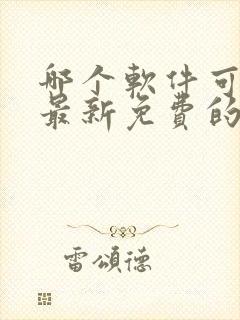 哪个軟件可
最新免費的
雷頌德